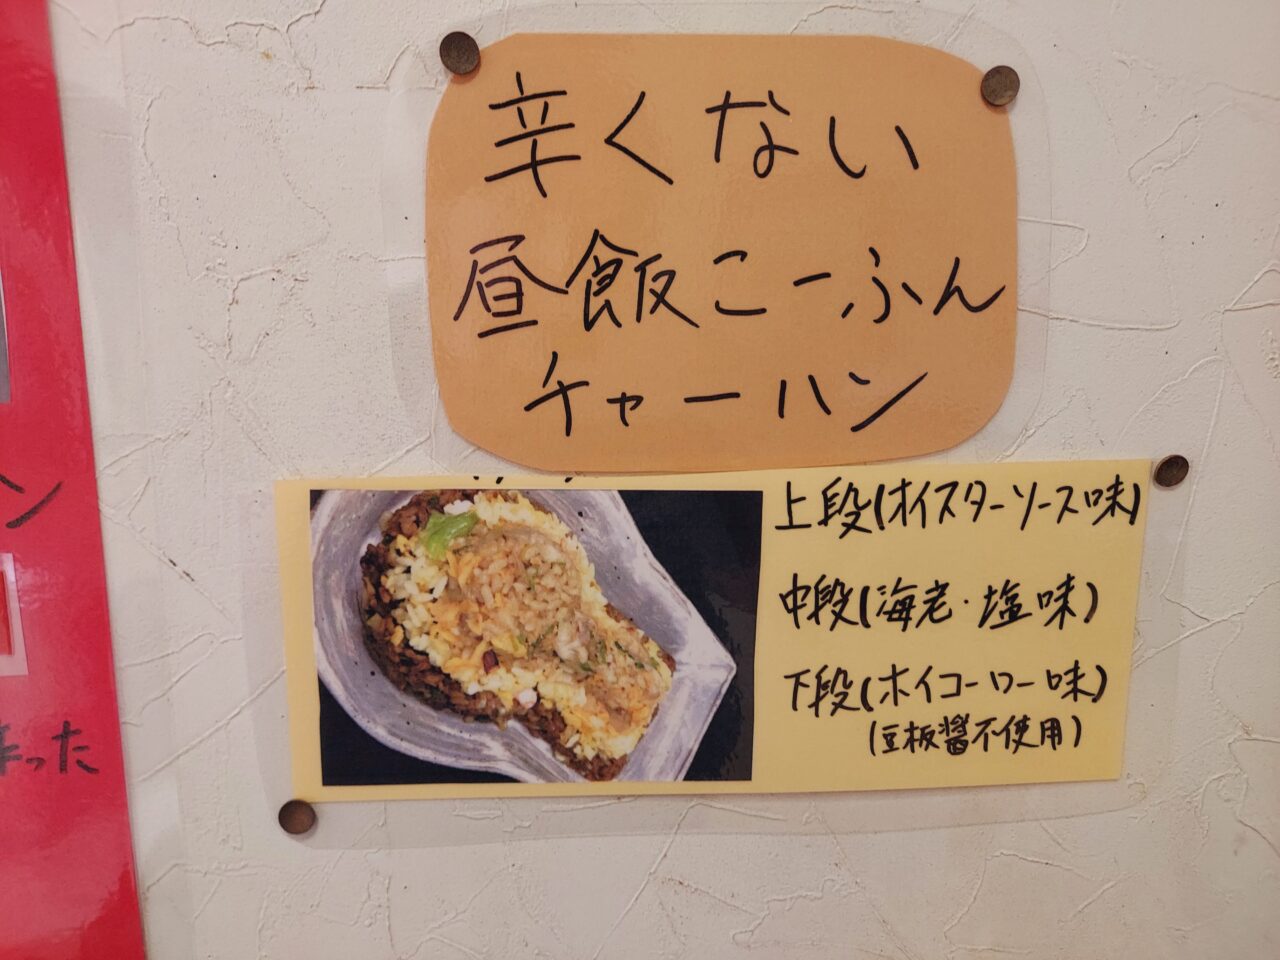 辛くない
昼飯こーふん
チャーハン
上段(オイスターソース味)
中段(海老・塩味)
下段(ホイコーロー味)
(豆板醤不使用)
ン
来った